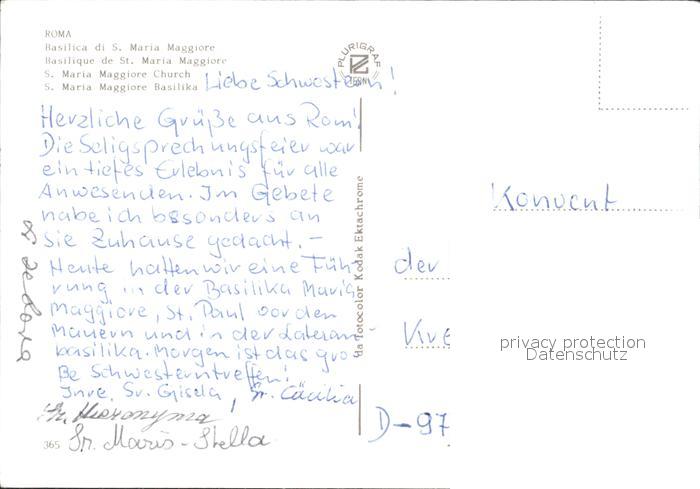 ROMA
Basilica di S. Maria Maggiore
Basilique de St. Maria Maggiore
S. Maria Maggiore Church
S. Maria Maggiore Basilika
PLURIGRAF
TERNI
Liebe Schwestern!
Herzliche Grüße aus Rom!
Die Seligsprechungsfeier war
ein tiefes Erlebnis für alle
Anwesenden. Im Gebete
habe ich besonders an
sie Zuhause gedacht. –
Heute hatten wir eine Füh-
rung in der Basilika Maria
Maggiore, St. Paul vor den
Mauern und in der Lateran-
basilika. Morgen ist das gro-
ße Schwesterntreffen!
Ihre, Sr. Gisela, Sr. Cäcilia
Sr. Hieronyma
365 Sr. Maris-Stella
da fotocolor Kodak Ektachrome
Konvent
der
D-97
privacy protection
Datenschutz